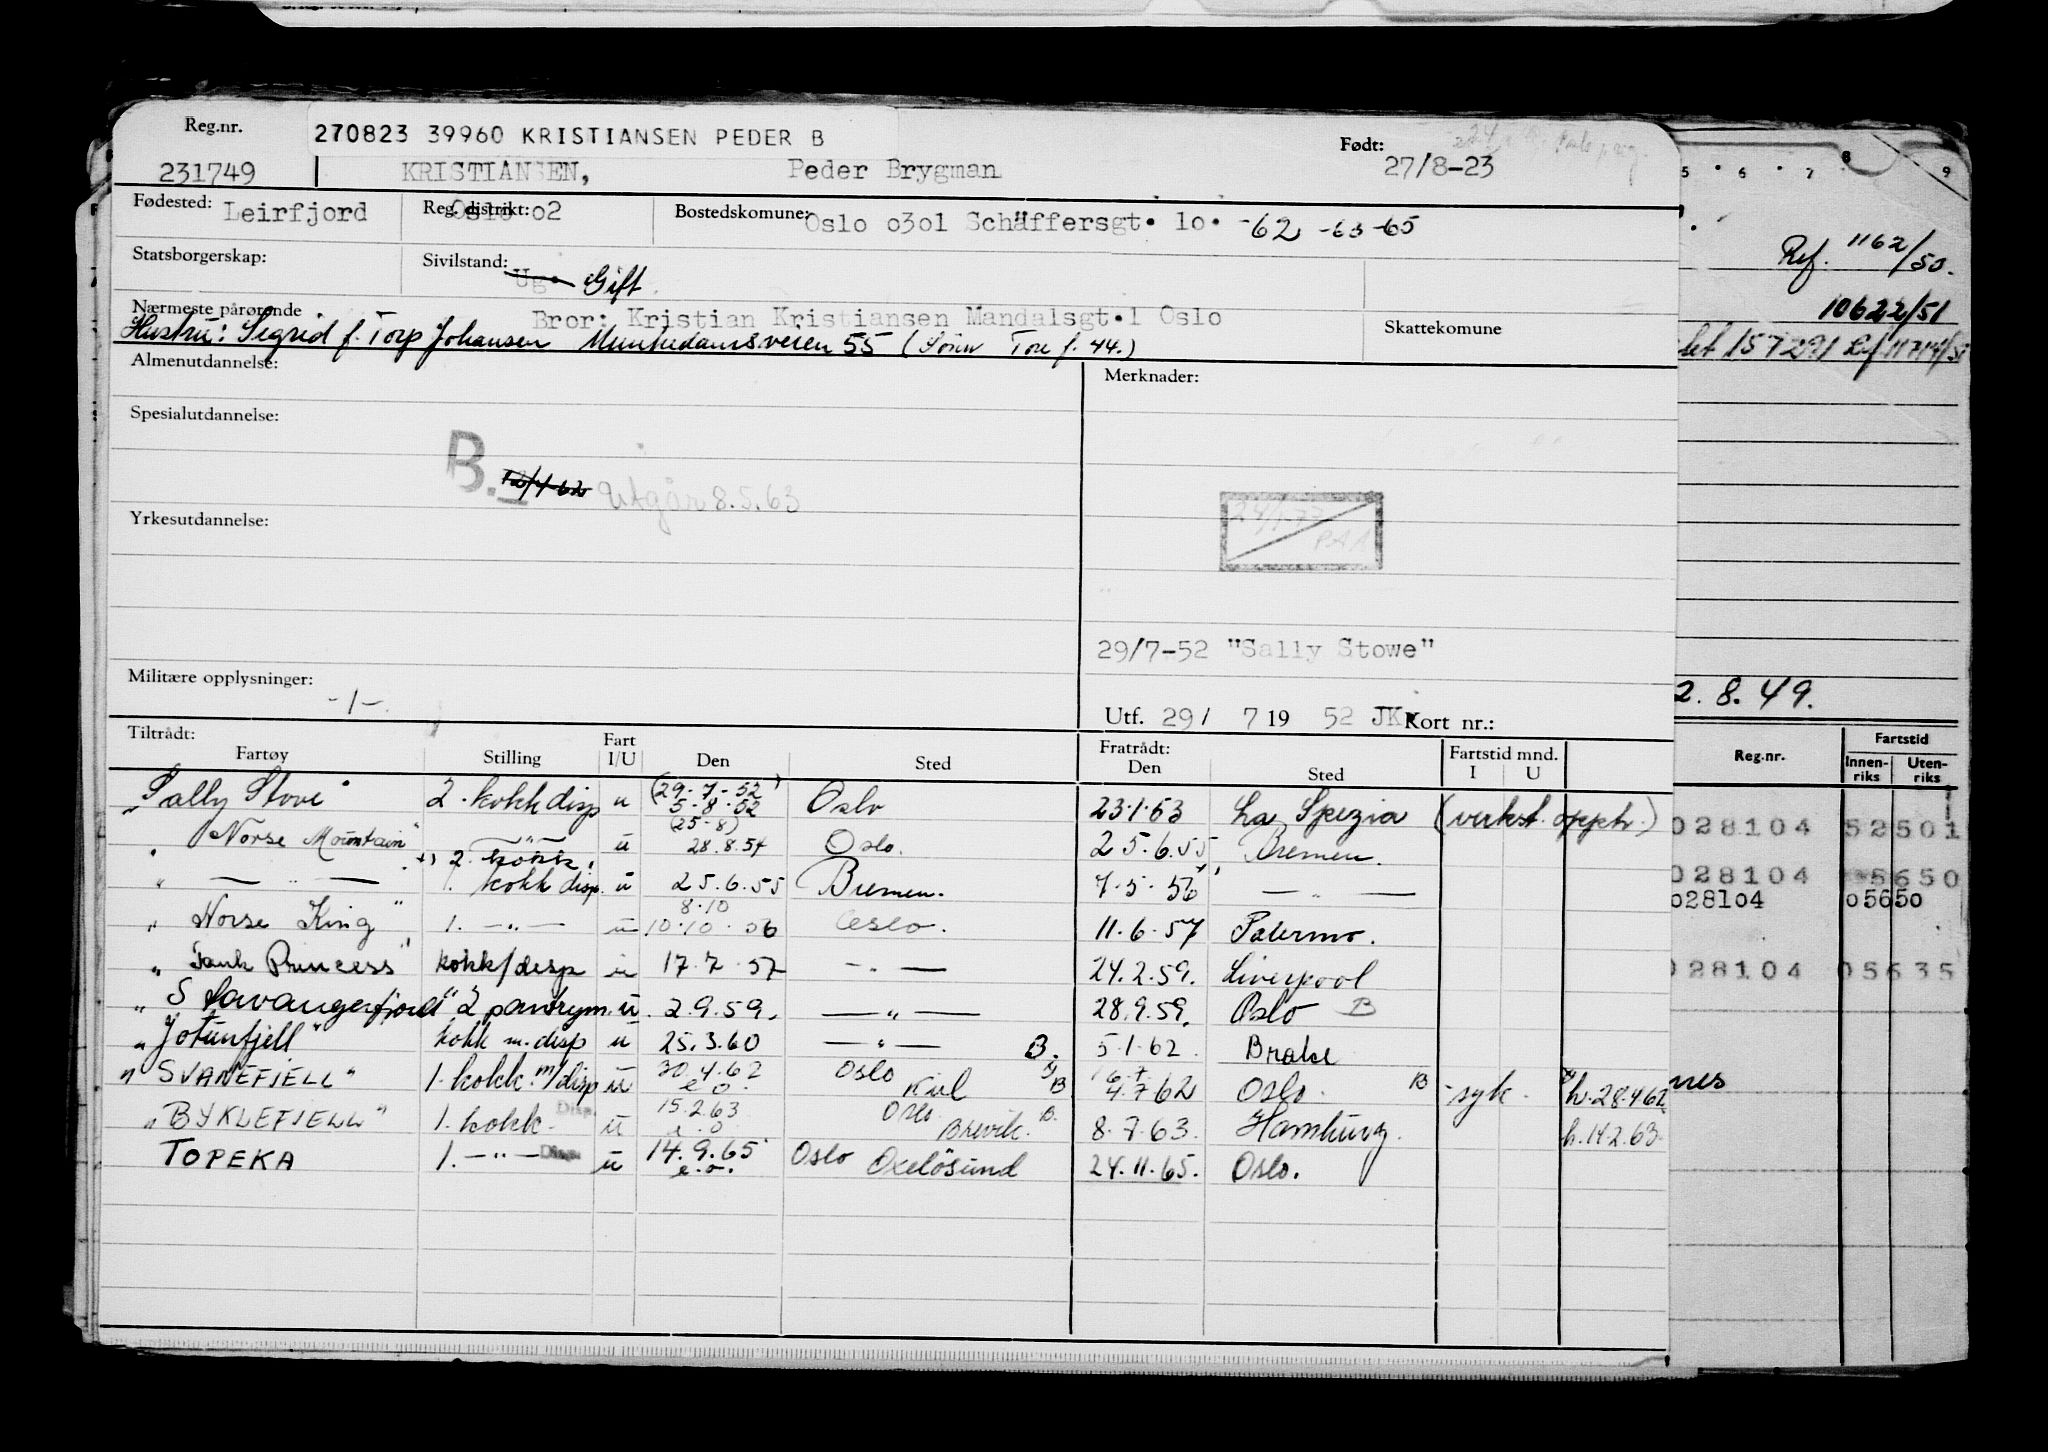 Reg.nr. 270823 39960 KRISTIANSEN PEDER B Født:
231749 KRISTIANSEN, Peder Brygman 27/8-23
Fødested: Leirfjord Reg. distrikt: Oslo o2 Bostedskomune: Oslo o3o1 Schäffersgt. 1o. -62 -63 -65
Statsborgerskap: Sivilstand: Ug. Gift
Nærmeste pårørende Bror: Kristian Kristiansen Mandalsgt.1 Oslo Skattekomune
Hustru: Sigrid f. Torp Johansen Munkedamsveien 55 (Sønn Tore f. 44.)
Almenutdannelse: Merknader:
Spesialutdannelse:
B. 12/4-62 Utgår 8.5.63
24/1-77
PAA
Yrkesutdannelse:
29/7-52 "Sally Stowe"
Militære opplysninger: -1-
Utf. 29/ 7 19 52 JK. Kort nr.:
Tiltrådt: Fratrådt: Fartstid mnd.
Fartøy Stilling Fart I/U Den Sted Den Sted I U
"Sally Stove" 2. kokk disp u (29-7-52) 5-8-52 Oslo 23.1.53 La Spezia (verkst. opph.)
" Norse Mountain" —"— u (25-8) 28.8.54 Oslo. 25.6.55 Bremen.
+) 2. kokk.
" — " — 1. kokk disp. u 25.6.55 Bremen. 7.5.56 +) — " —
" Norse King" 1. —"— u 8.10 10.10.56 Oslo. 11.6.57 Palermo.
" Tank Princess" kokk/disp u 17.7.57 — " — 24.2.59. Liverpool
" Stavangerfjord" 2 pantrym. u. 2.9.59. — " — 28.9.59. Oslo B
"Jotunfjell" kokk m. disp u 25.3.60 — " — B. 5.1.62. Brake
"SVANEFJELL" 1. kokk. m/disp u 30.4.62 e.o. Oslo Kiel B 4.7.62 Oslo. B - syk. h.28.4.62
"BYKLEFJELL" 1. kokk. Disp. u 15.2.63 e.o. Oslo Brevik. B. 8.7.63. Hamburg. h.14.2.63.
TOPEKA 1. —"— Disp. u 14.9.65 e.o. Oslo Oxelösund 24.11.65. Oslo.
5 6 7 8 9
Ref. 1162/50.
10622/51
2.8.49.
Reg.nr. Fartstid
Innenriks Utenriks
028104 52501
028104 5650
o281o4 o5650
028104 05635
nes